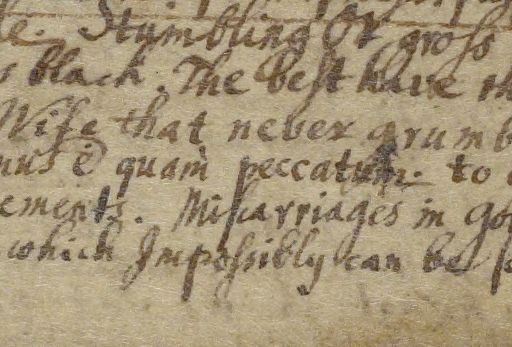 Stumbling Or gross
black. The best have
Wife that never grumb
nus ê quam peccatum. to
ements. Miscarriages in Go
which Impossibly can be